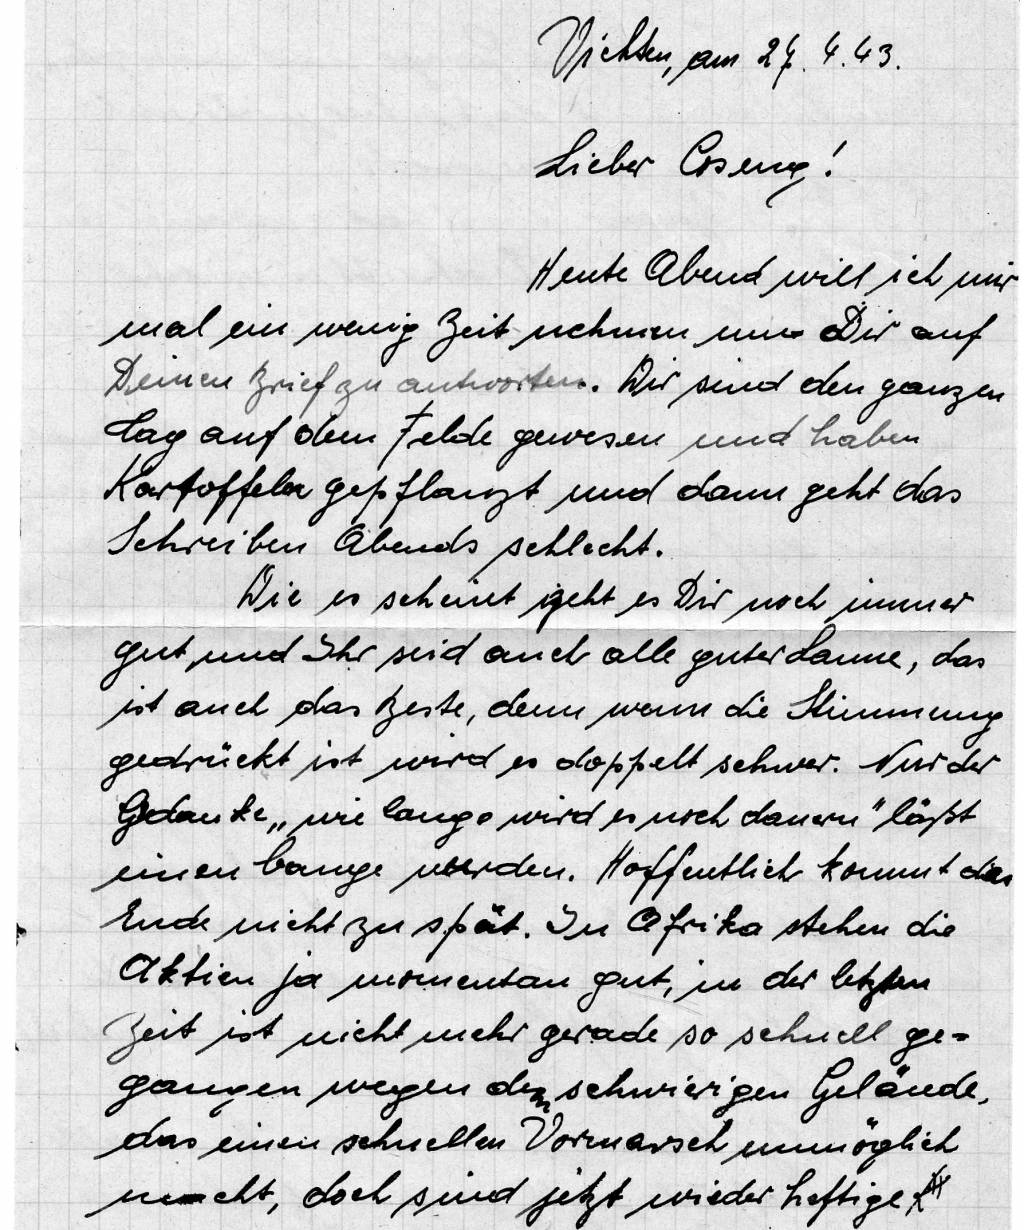 Vichten, am 27. 4. 43.
Lieber Coseng!
Heute Abend will ich mir
mal ein wenig Zeit nehmen um Dir auf
Deinen Brief zu antworten. Wir sind den ganzen
Tag auf dem Felde gewesen und haben
Kartoffeln gepflanzt und dann geht das
Schreiben Abends schlecht.
Wie es scheint geht es Dir noch immer
gut und Ihr seid auch alle guter Laune, das
ist auch das Beste, denn wenn die Stimmung
gedrückt ist wird es doppelt schwer. Nur der
Gedanke „wie lange wird es noch dauern" läßt
einen bange werden. Hoffentlich kommt das
Ende nicht zu spät. In Afrika stehen die
Aktien ja momentan gut, in der letzten
Zeit ist nicht mehr gerade so schnell ge=
gangen wegen dem schwierigen Gelände,
das einen schnellen Vormarsch unmöglich
macht, doch sind jetzt wieder heftige